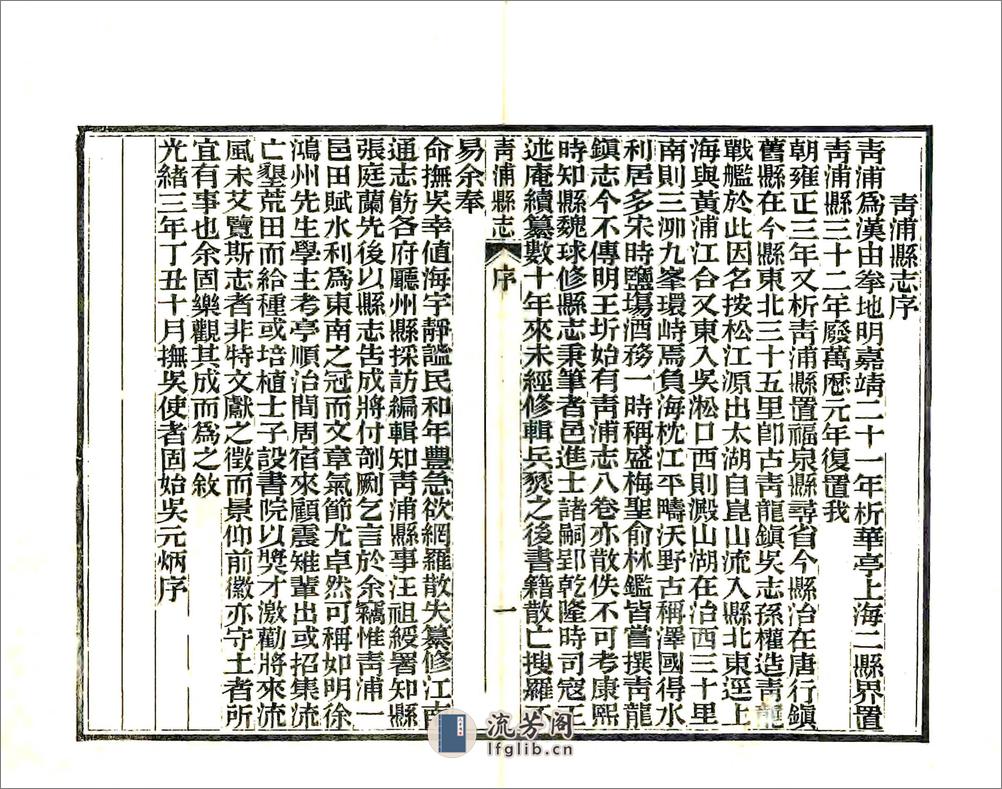 青浦縣志序
青浦爲漢由拳地明嘉靖二十一年析華亭上海二縣界置
青浦縣三十二年廢萬歷元年復置我
朝雍正三年又析青浦縣置福泉縣尋省今縣治在唐行鎭
舊縣在今縣東北三十五里卽古青龍鎭吳志孫權造青龍
戰艦於此因名按松江源出太湖自崑山流入縣北東逕上
海與黃浦江合又東入吳淞口西則澱山湖在治西三十里
南則三泖九峯環峙焉負海枕江平疇沃野古稱澤國得水
利居多宋時鹽場酒務一時稱盛梅聖俞林鑑皆嘗撰青龍
鎭志今不傳明王圻始有青浦志八卷亦散佚不可考康熙
時知縣魏球修縣志秉筆者邑進士諸嗣郢乾隆時司寇王
述庵續纂數十年來未經修輯兵燹之後書籍散亡搜羅不
青浦縣志 序 一
易余奉
命撫吳幸値海宇靜謐民和年豐急欲網羅散失纂修江南
通志飭各府廳州縣採訪編輯知青浦縣事汪祖綬署知縣
張庭蘭先後以縣志告成將付剞劂乞言於余竊惟青浦一
邑田賦水利爲東南之冠而文章氣節尤卓然可稱如明徐
鴻州先生學主考亭順治間周宿來顧震雉輩出或招集流
亡墾荒田而給種或培植士子設書院以奬才激勸將來流
風未艾覽斯志者非特文獻之徵而景仰前徽亦守土者所
宜有事也余固樂觀其成而爲之敘
光緒三年丁丑十月撫吳使者固始吳元炳序
流芳阁
lfglib.cn